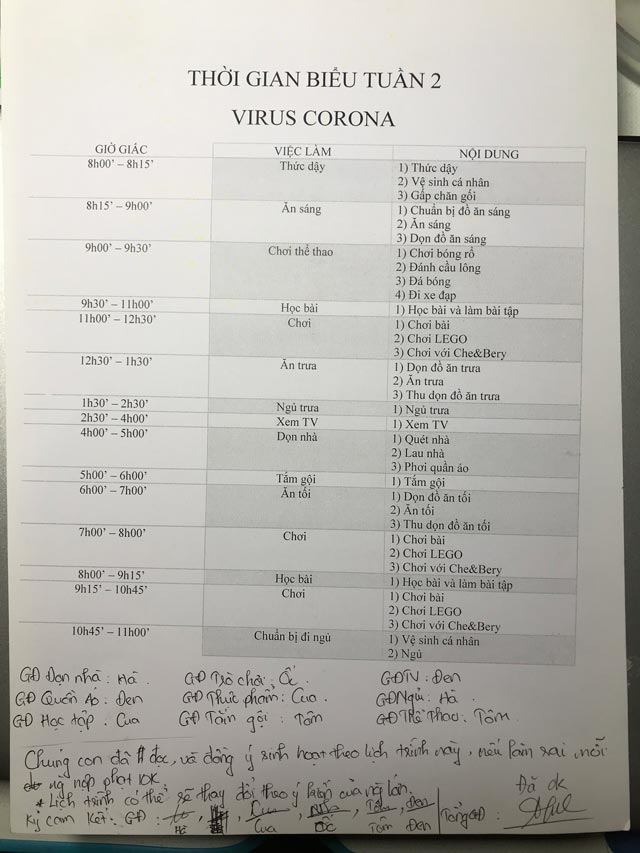 THỜI GIAN BIỂU TUẦN 2
VIRUS CORONA
GIỜ GIẤC VIỆC LÀM NỘI DUNG
8h00’ – 8h15’ Thức dậy 1) Thức dậy
2) Vệ sinh cá nhân
3) Gấp chăn gối
8h15’ – 9h00’ Ăn sáng 1) Chuẩn bị đồ ăn sáng
2) Ăn sáng
3) Dọn đồ ăn sáng
9h00’ – 9h30’ Chơi thể thao 1) Chơi bóng rổ
2) Đánh cầu lông
3) Đá bóng
4) Đi xe đạp
9h30’ – 11h00’ Học bài 1) Học bài và làm bài tập
11h00’ – 12h30’ Chơi 1) Chơi bài
2) Chơi LEGO
3) Chơi với Che&Bery
12h30’ – 1h30’ Ăn trưa 1) Dọn đồ ăn trưa
2) Ăn trưa
3) Thu dọn đồ ăn trưa
1h30’ – 2h30’ Ngủ trưa 1) Ngủ trưa
2h30’ – 4h00’ Xem TV 1) Xem TV
4h00’ – 5h00’ Dọn nhà 1) Quét nhà
2) Lau nhà
3) Phơi quần áo
5h00’ – 6h00’ Tắm gội 1) Tắm gội
6h00’ – 7h00’ Ăn tối 1) Dọn đồ ăn tối
2) Ăn tối
3) Thu dọn đồ ăn tối
7h00’ – 8h00’ Chơi 1) Chơi bài
2) Chơi LEGO
3) Chơi với Che&Bery
8h00’ – 9h15’ Học bài 1) Học bài và làm bài tập
9h15’ – 10h45’ Chơi 1) Chơi bài
2) Chơi LEGO
3) Chơi với Che&Bery
10h45’ – 11h00’ Chuẩn bị đi ngủ 1) Vệ sinh cá nhân
2) Ngủ
GĐ Dọn nhà : Hà GĐ Trò chơi : Ốc GĐTV : Đen
GĐ Quần Áo : Đen GĐ Thực phẩm : Cua GĐNgủ : Hà
GĐ Học tập : Cua GĐ Tắm gội : Tôm GĐThể Thao : Tôm
Chúng con đã đọc, và đồng ý sinh hoạt theo lịch trình này, nếu làm sai mỗi
ng nộp phạt 10K
* Lịch trình có thể sẽ thay đổi theo ý kiến của ng lớn. Đã ok
Ký cam kết : GĐ : Cua, Tôm, Đen Tổng GĐ :
Hà Cua Ốc Tôm Đen